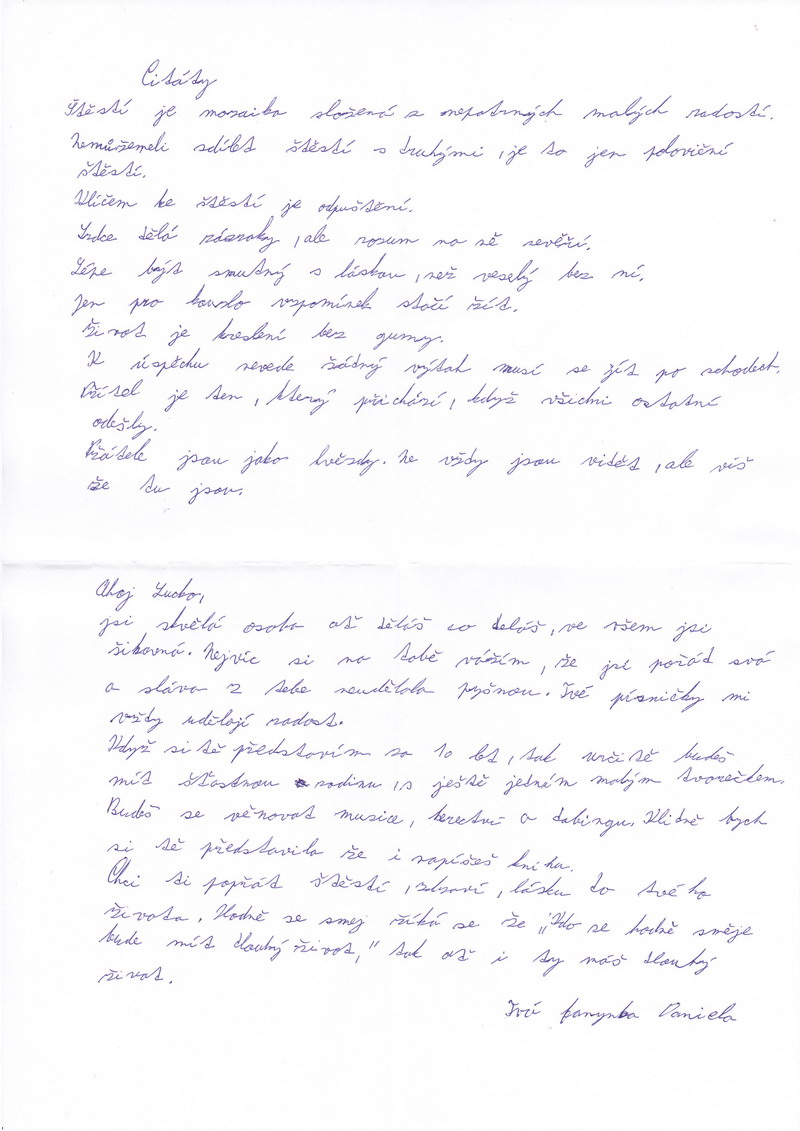 Citáty
Štěstí je mozaika složená z nepatrných malých radostí.
Nemůžemeli sdílet štěstí s druhými, je to jen poloviční
štěstí.
Klíčem ke štěstí je odpuštění.
Srdce dělá zázraky, ale rozum na ně nevěří.
Lépe být smutný s láskou, než veselý bez ní.
Jen pro kouzlo vzpomínek stačí žít.
Život je kreslení bez gumy.
K úspěchu nevede žádný výtah musí se jít po schodech.
Přítel je ten, který přichází, když všichni ostatní
odešly.
Přátele jsou jako hvězdy. Ne vždy jsou vidět, ale víš
že tu jsou.
Ahoj Lucko,
jsi skvělá osoba ať děláš co deláš, ve všem jsi
šikovná. Nejvíc si na tobě vážím, že jsi pořád svá
a sláva z tebe neudělala pyšnou. Tvé písničky mi
vždy udělají radost.
Když si tě představím za 10 let, tak určitě budeš
mít šťastnou rodinu, s ještě jedním malým tvorečkem.
Budeš se věnovat musice, herectví a dabingu. Klidně bych
si tě představila že i napíšeš kniha.
Chci ti popřát štěstí, zdraví, lásku do tvého
života. Hodně se smej říká se že "Kdo se hodně směje
bude mít dlouhý život," tak ať i ty máš dlouhý
život.
Tvá fanynka Daniela